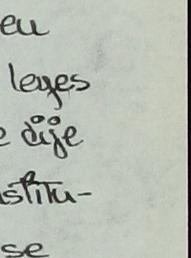 eu
leyes
e dije
nstitu-
se